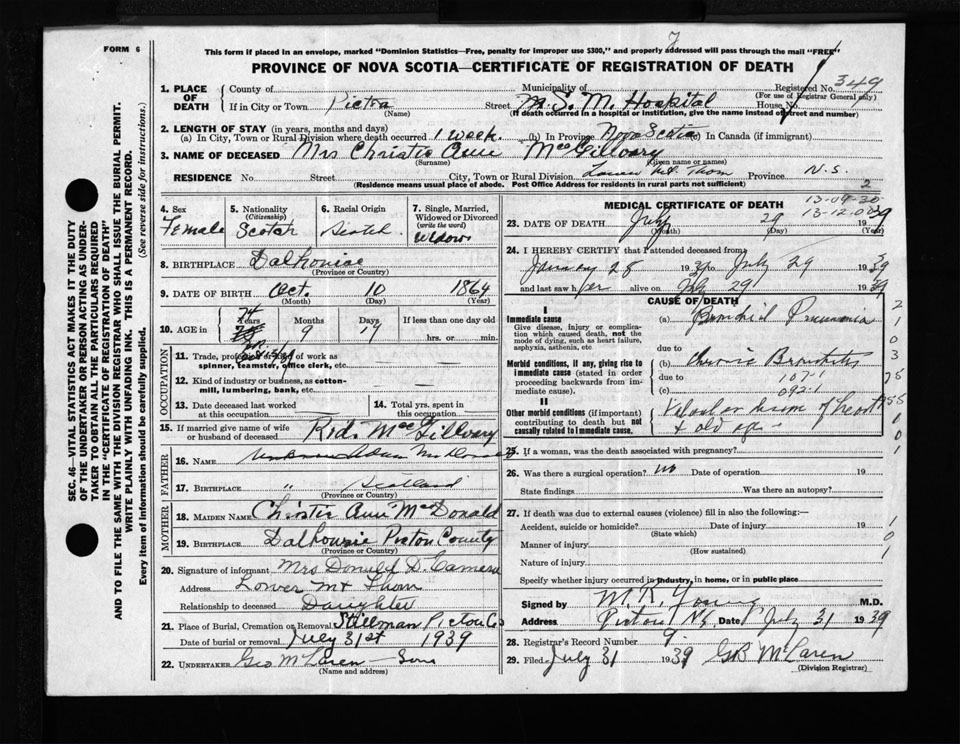 FORM 6
This form if placed in an envelope, marked "Dominion Statistics—Free, penalty for improper use $300," and properly addressed will pass through the mail "FREE"
7
PROVINCE OF NOVA SCOTIA—CERTIFICATE OF REGISTRATION OF DEATH
SEC. 46—VITAL STATISTICS ACT MAKES IT THE DUTY
OF THE UNDERTAKER OR PERSON ACTING AS UNDER-
TAKER TO OBTAIN ALL THE PARTICULARS REQUIRED
IN THE "CERTIFICATE OF REGISTRATION OF DEATH"
AND TO FILE THE SAME WITH THE DIVISION REGISTRAR WHO SHALL ISSUE THE BURIAL PERMIT.
WRITE PLAINLY WITH UNFADING INK. THIS IS A PERMANENT RECORD.
Every item of Information should be carefully supplied. (See reverse side for instructions.)
1. PLACE OF DEATH County of Municipality of Registered No. 349
(For use of Registrar General only)
If in City or Town Pictou Street M.S.M. Hospital House No.
(Name) (If death occurred in a hospital or institution, give the name instead of street and number)
2. LENGTH OF STAY (in years, months and days)
(a) In City, Town or Rural Division where death occurred 1 week. (b) In Province Nova Scotia (c) In Canada (if immigrant)
3. NAME OF DECEASED Mrs Christie Ann MacGillvary
(Surname) (Given name or names)
RESIDENCE No. Street City, Town or Rural Division Lower Mt. Thom Province N.S.
(Residence means usual place of abode. Post Office Address for residents in rural parts not sufficient) 2
4. Sex Female
5. Nationality (Citizenship) Scotch
6. Racial Origin Scotch
7. Single, Married, Widowed or Divorced (write the word) Widow
8. BIRTHPLACE Dalhousie
(Province or Country)
9. DATE OF BIRTH Oct. 10 1864
(Month) (Day) (Year)
10. AGE in 74 Years Months 9 Days 19 If less than one day old
hrs. or min.
11. Trade, profession or kind of work as
spinner, teamster, office clerk, etc. —
12. Kind of industry or business, as cotton-
mill, lumbering, bank, etc. —
13. Date deceased last worked
at this occupation
14. Total yrs. spent in
this occupation
15. If married give name of wife
or husband of deceased Rod. MacGillvary
FATHER
16. NAME Unknown Adam McDonald
17. BIRTHPLACE " Scotland
(Province or Country)
MOTHER
18. MAIDEN NAME Christie Ann MacDonald
19. BIRTHPLACE Dalhousie Pictou County
(Province or Country)
20. Signature of informant Mrs Donald D. Cameron
Address Lower Mt Thom
Relationship to deceased Daughter
21. Place of Burial, Cremation or Removal Stillman Pictou Co
Date of burial or removal July 31st 1939
22. UNDERTAKER Geo McLaren — Sons
(Name and address)
MEDICAL CERTIFICATE OF DEATH
13-09-30
13-12-00
23. DATE OF DEATH July 29 1939
(Month) (Day) (Year)
24. I HEREBY CERTIFY that I attended deceased from
January 28 19 to July 29 1939
and last saw her alive on July 29 1939
CAUSE OF DEATH
I
Immediate cause
Give disease, injury or complica-
tion which caused death, not the
mode of dying, such as heart failure,
asphyxia, asthenia, etc
(a) Bronchial Pneumonia
due to
Morbid conditions, if any, giving rise to
immediate cause (stated in order
proceeding backwards from im-
mediate cause).
(b) Chronic Bronchitis
due to 107-1
(c) 092-1
II
Other morbid conditions (if important)
contributing to death but not
causally related to immediate cause.
Valvular disease of heart
& old age
25. If a woman, was the death associated with pregnancy?
26. Was there a surgical operation? no Date of operation 19
State findings Was there an autopsy?
27. If death was due to external causes (violence) fill in also the following:—
Accident, suicide or homicide? Date of injury 19
(State which)
Manner of injury
(How sustained)
Nature of injury
Specify whether injury occurred in industry, in home, or in public place
Signed by M.R. Young M.D.
Address Pictou N.S. Date July 31 1939
28. Registrar's Record Number 9
29. Filed July 31 1939 GB McLaren
(Division Registrar)